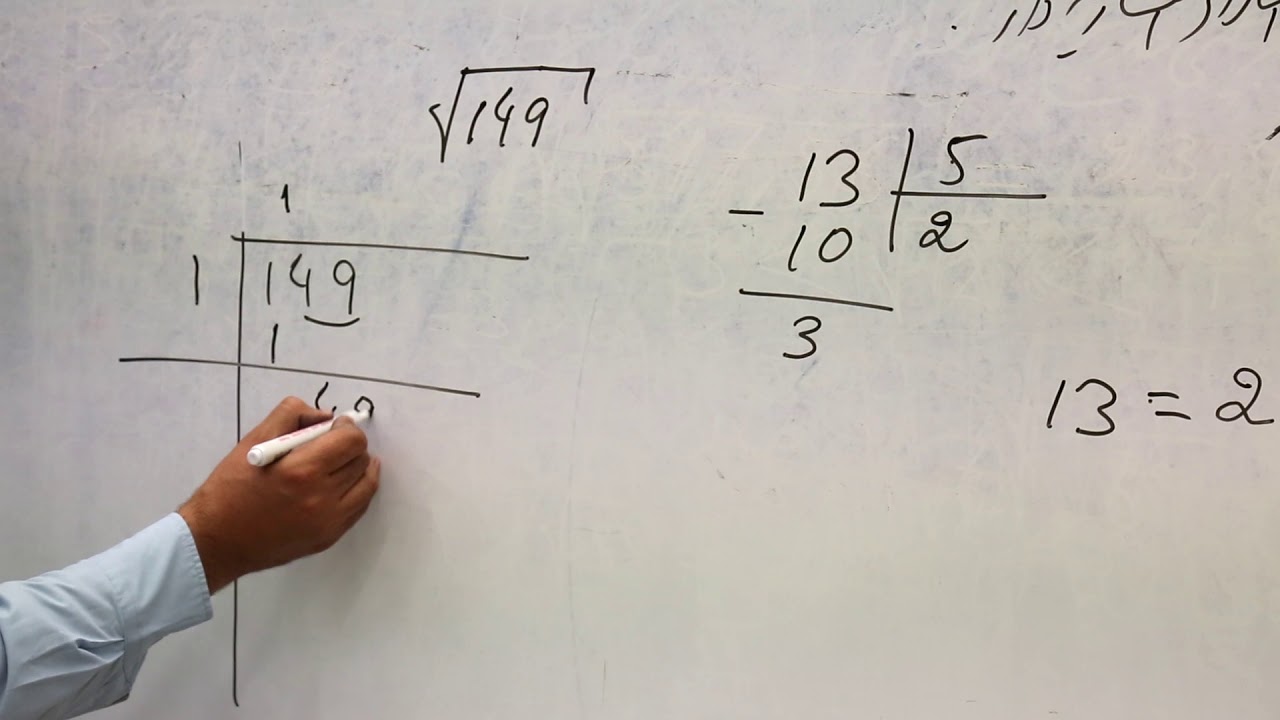 √149
1
1 149
1
49
13 5
- 10 2
3
13 = 2